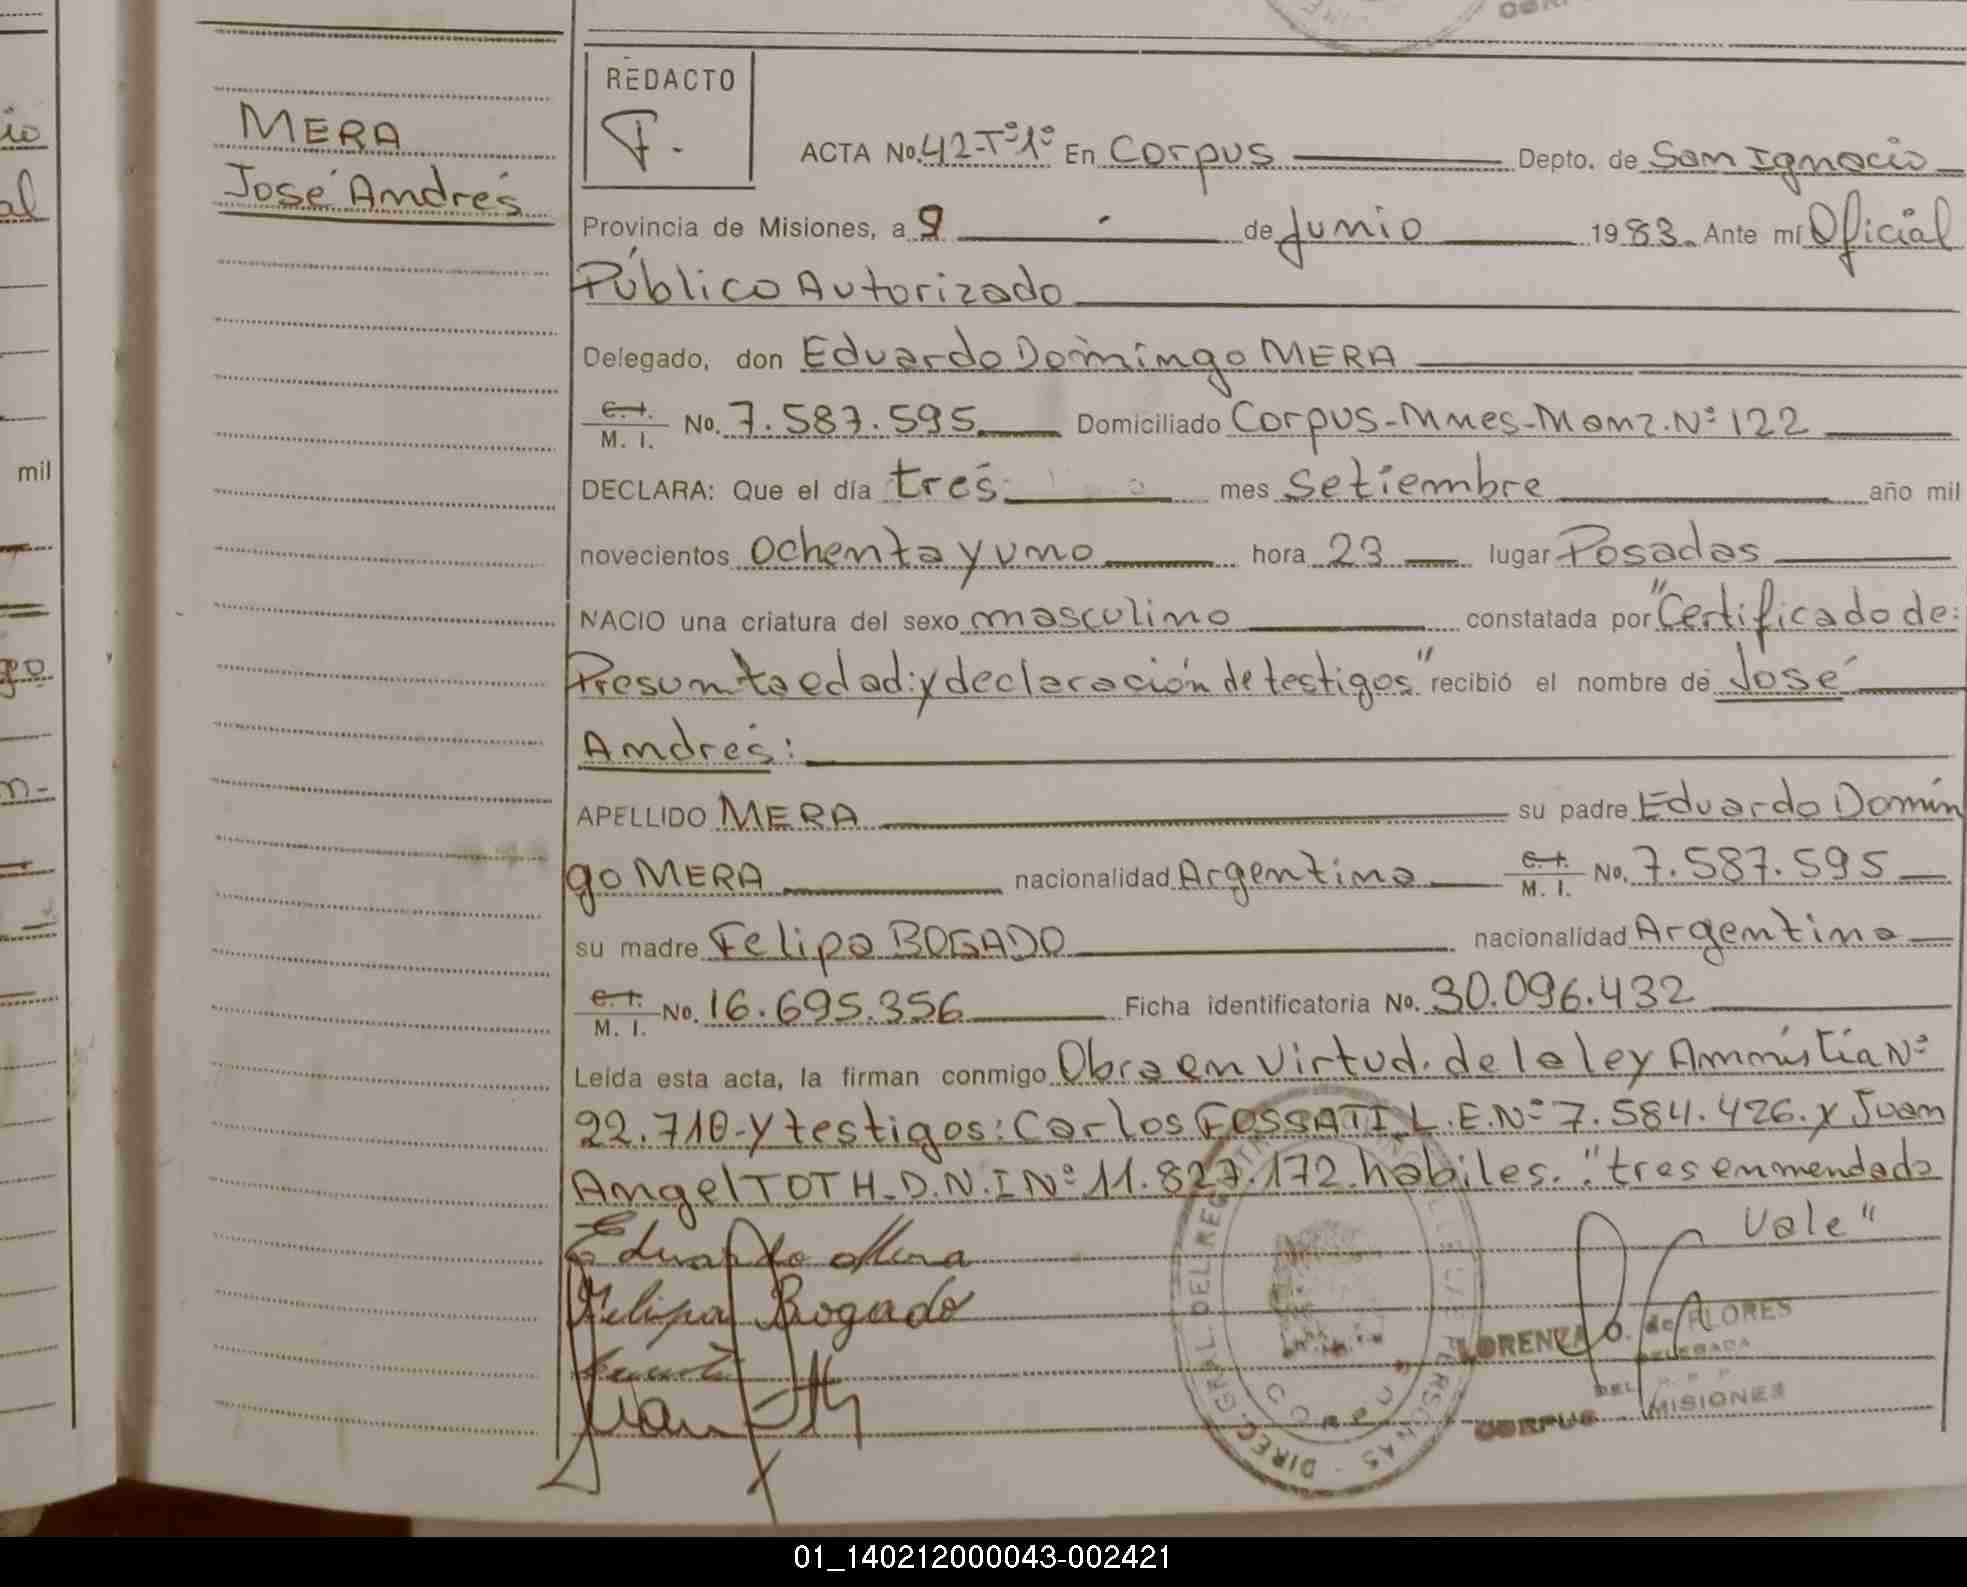 MERA
José Andrés
REDACTO
F.
ACTA No. 42-Tº1º En Corpus Depto. de San Ignacio
Provincia de Misiones, a 9 de Junio 1983. Ante mí Oficial
Público Autorizado
Delegado, don Eduardo Domingo MERA
C. I. M. I. No. 7.587.595 Domiciliado Corpus-Mnes-Manz. Nº 122
DECLARA: Que el día tres mes setiembre año mil
novecientos ochenta y uno hora 23 lugar Posadas
NACIO una criatura del sexo masculino constatada por "Certificado de:
Presunta edad: y declaración de testigos" recibió el nombre de José
Andrés:
APELLIDO MERA su padre Eduardo Domin
go MERA nacionalidad Argentina C. I. M. I. No. 7.587.595
su madre Felipa BOGADO nacionalidad Argentina
C. I. M. I. No. 16.695.356 Ficha identificatoria No. 30.096.432
Leída esta acta, la firman conmigo Obra en virtud. de la ley Ammistía Nº
22.710-y testigos: Carlos FOSSATI, L.E.Nº 7.584.426. y Juan
Angel TOTH. D.N.I Nº 11.827.172. habiles. "tres enmendado
Vale"
Eduardo Mera
Felipa Bogado
Juan
LORENZA O. de FLORES
DELEGADA
DEL R P P
CORPUS MISIONES
DIREC. GRAL. DEL REG
PERSONAS
mil
01_140212000043-002421